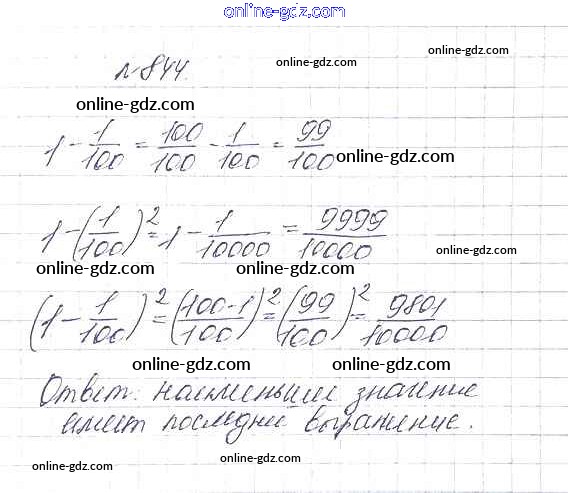 online-gdz.com
online-gdz.com
№844.
online-gdz.com
online-gdz.com
1 - 1/100 = 100/100 - 1/100 = 99/100
online-gdz.com
1 - (1/100)² = 1 - 1/10000 = 9999/10000
online-gdz.com
online-gdz.com
(1 - 1/100)² = (100-1/100)² = (99/100)² = 9801/10000
online-gdz.com
online-gdz.com
Ответ: наименьшее значение
online-gdz.com
имеет последнее выражение.
online-gdz.com
online-gdz.com
online-gdz.com